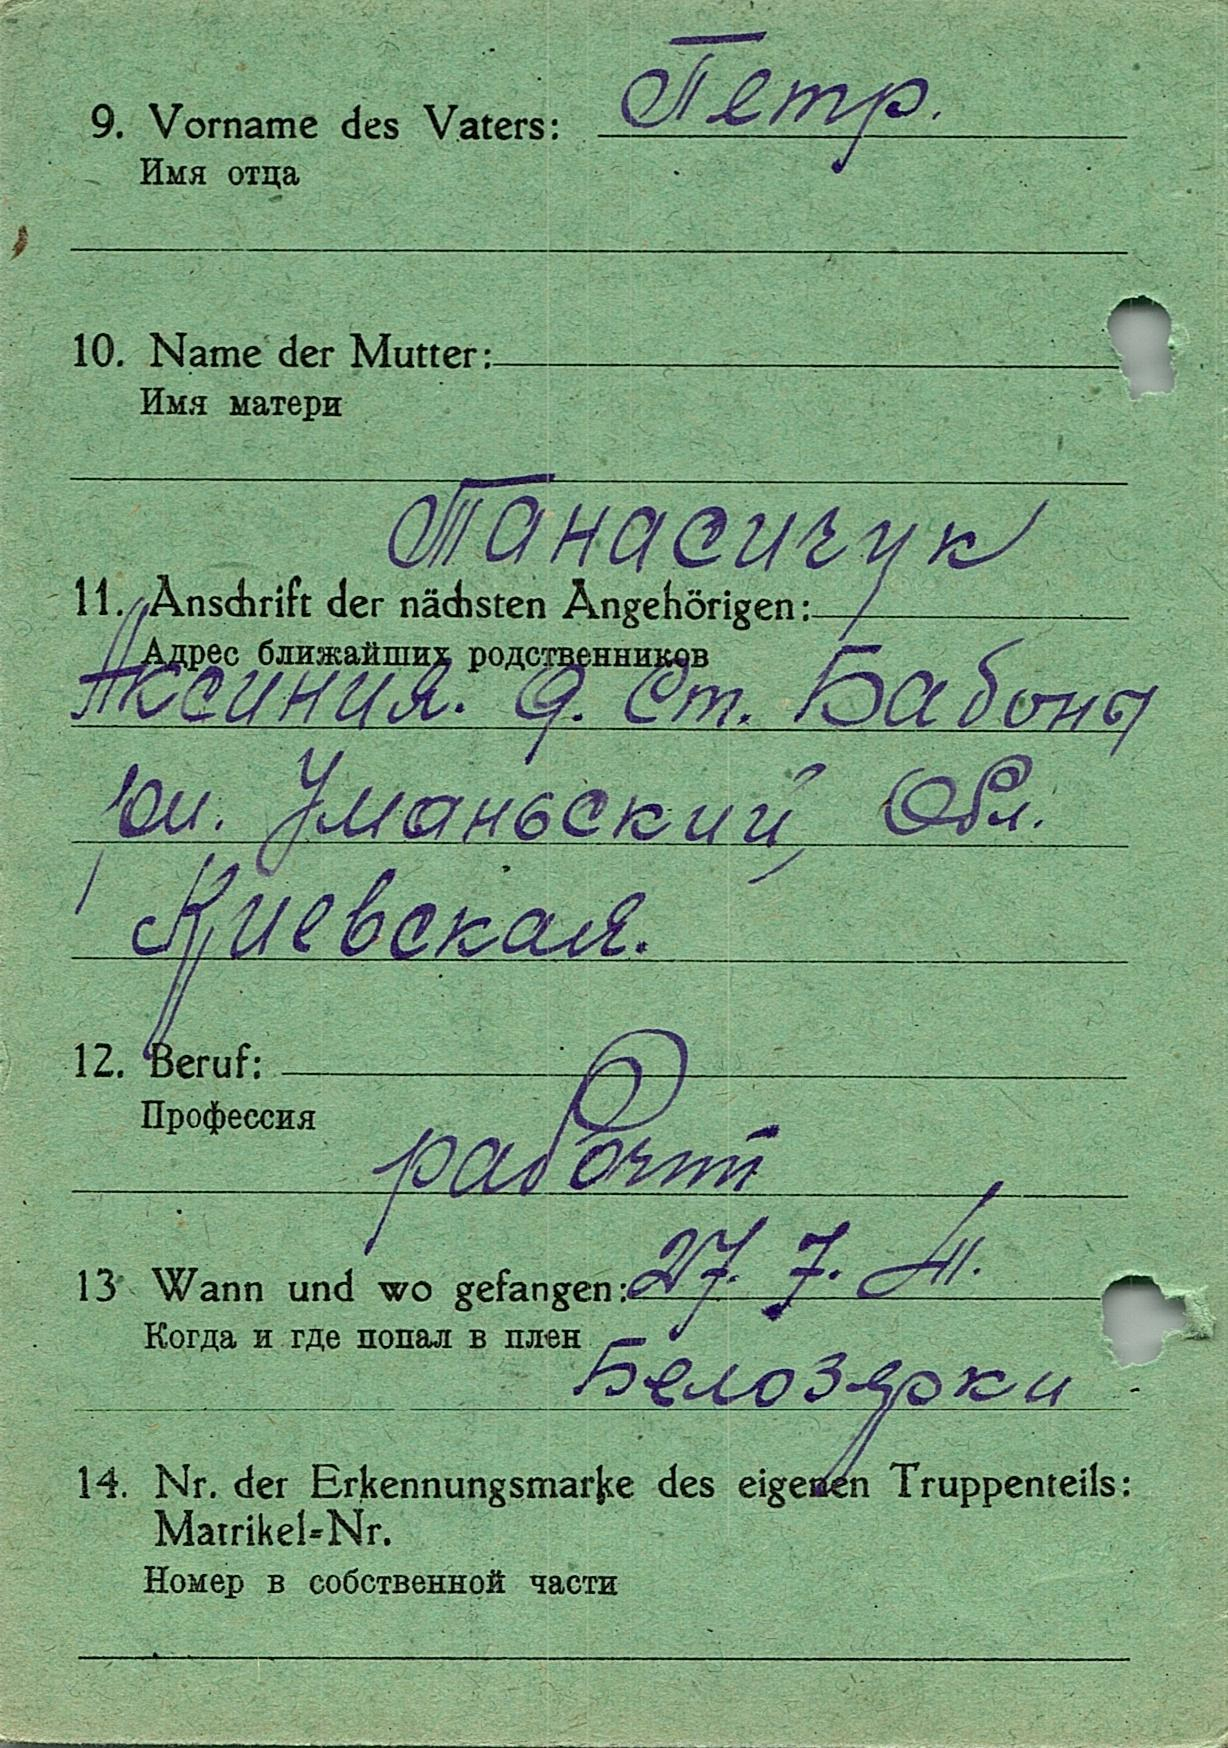 9. Vorname des Vaters: Петр.
Имя отца
10. Name der Mutter:
Имя матери
Танасичук
11. Anschrift der nächsten Angehörigen:
Адрес ближайших родственников
Аксиния. д. Ст. Бабоны
Уманьский, Обл.
Киевская.
12. Beruf:
Профессия
рабочий
13 Wann und wo gefangen: 27. 7. 41.
Когда и где попал в плен
Белозярки
14. Nr. der Erkennungsmarke des eigenen Truppenteils:
Matrikel-Nr.
Номер в собственной части